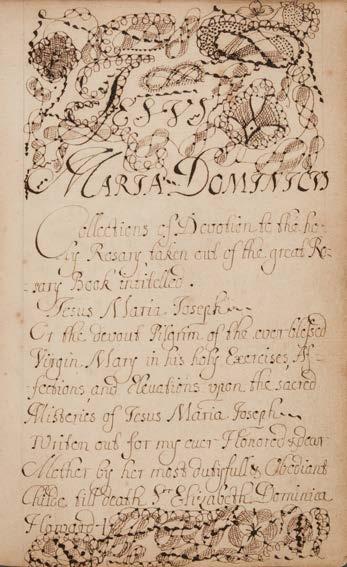 Jesus
Maria Dominicus
Collections of Devotion to the ho-
ly Rosary taken out of the great Ro-
sary Book intitelled.
Jesus Maria Joseph
Or the devout Pilgrim of the ever blessed
Virgin Mary in his holy Exercises, Af-
fections and Elevations upon the sacred
Misteries of Jesus Maria Joseph
Writen out for my ever Honored & dear
Mother by her most dutyfull & Obedient
Childe till death. Sr Elizabeth Dominica
Howard